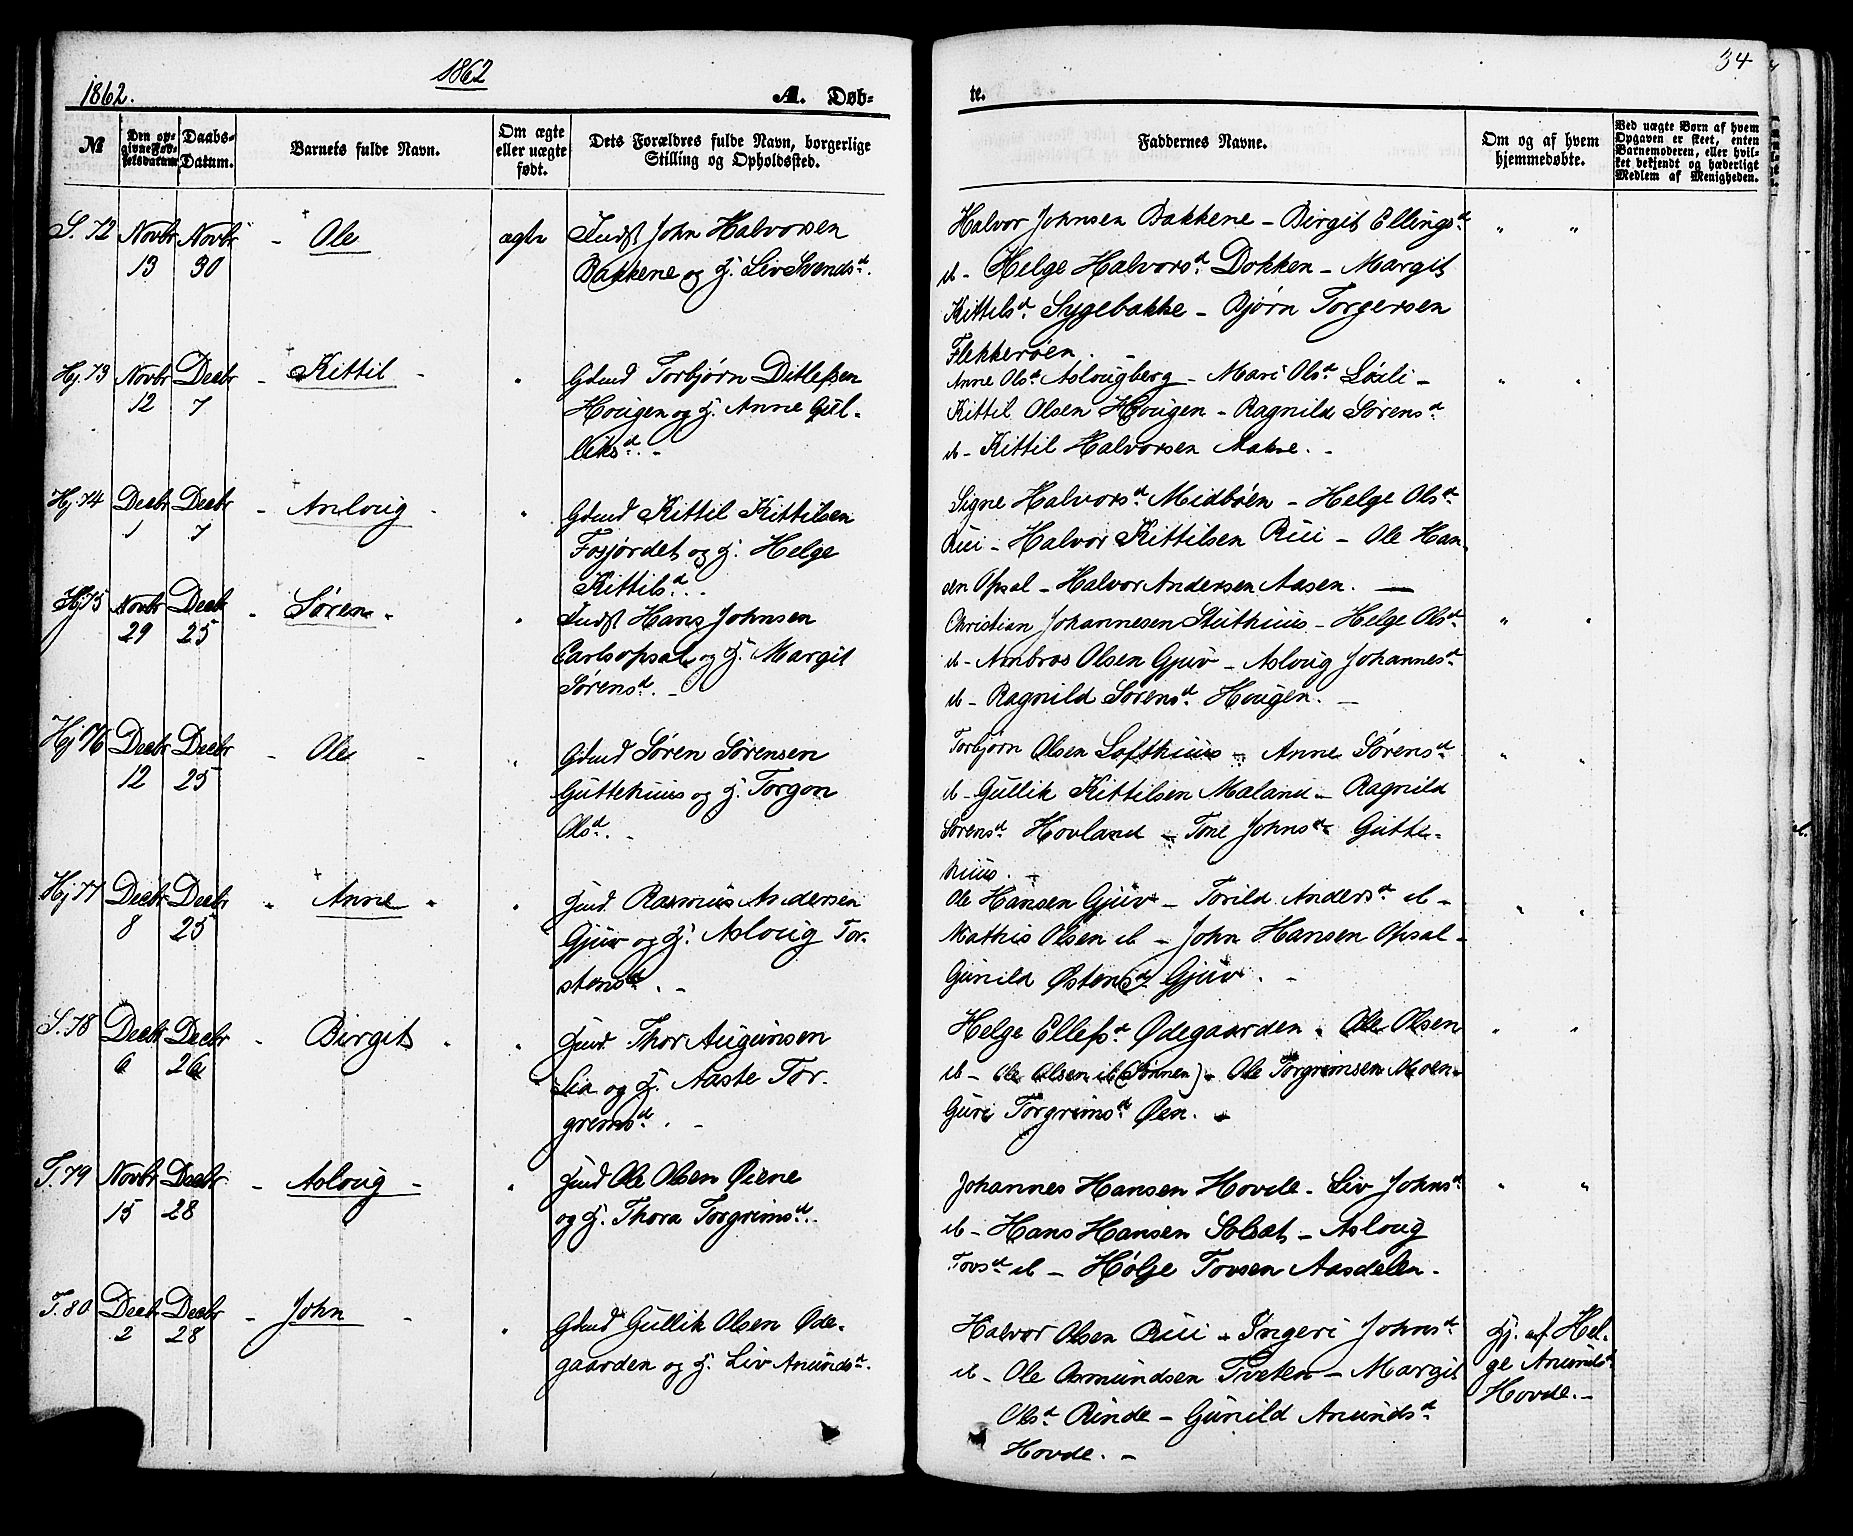 1862
34
1862.
A. Døb-
te.
№
Den op-
givne Fød-
selsdatum
Daabs-
Datum.
Barnets fulde Navn.
Om ægte
eller uægte
født.
Dets Forældres fulde Navn, borgerlige
Stilling og Opholdssted.
Faddernes Navne.
Om og af hvem
hjemmedøbte.
Ved uægte Børn af hvem
Opgaven er skeet, enten
Barnemoderen, eller hvil-
ket bekjendt og hæderligt
Medlem af Menigheden.
S. 72 Novbr 13 Novbr 30 - Ole ægte Indst John Halvorsen
Bakkene og H. Liv Svendsd.
Halvor Johnsen Bakkene - Birgit Ellingsd. " "
ib - Helge Halvorsd. Dokken - Margit
Kittilsd. Sygebakke - Bjørn Torgersen
Flekkerøen.
Hj. 73 Novbr 12 Decbr 7 - Kittil - " Gdmd Torbjørn Ditlefsen
Hougen og H. Anne Gul-
liksd. -
Anne Olsd. Aslougberg - Mari Olsd. Løxli - " "
Kittil Olsen Hougen - Ragnild Sørensd.
ib - Kittil Halvorsen Makre. -
Hj. 74 Decbr 1 Decbr 7 - Anloug - " Gdmd Kittil Kittilsen
Fosjordet og H. Helge
Kittilsd. -
Signe Halvorsd. Midbøen - Helge Olsd.
Rui - Halvor Kittilsen Rui - Ole Han-
sen Opsal - Halvor Andersen Aasen. -
Hj 75 Novbr 29 Decbr 25 - Søren - " Indst Hans Johnsen
Carlsopsal og H. Margit
Sørensd. -
Christian Johannesen Stuthuus - Helge Olsd. " "
ib - Ambros Olsen Gjuv - Asloug Johannesd.
ib - Ragnild Sørensd. Hougen. -
Hj 76 Decbr 12 Decbr 25 - Ole - " Gdmd Søren Sørensen
Guttehuus og H. Torgon
Olsd. -
Torbjørn Olsen Lofthuus - Anne Sørensd. " "
ib - Gullik Kittilsen Maland - Ragnild
Sørensd. Hovland - Tone Johnsd. Gutte-
huus. -
Hj 77 Decbr 8 Decbr 25 - Anne - " Gmd. Rasmus Andersen
Gjuv og H. Asloug Tor-
stensd. -
Ole Hansen Gjuv - Torild Andersd. ib - " "
Mathis Olsen ib - John Hansen Opsal -
Gunild Østensd. Gjuv. -
S. 78 Decbr 6 Decbr 26 - Birgit - " Gmd. Thor Augunsen
Lia og H. Aaste Tor-
grimsd. -
Helge Ellefsd. Ødegaarden - Ole Olsen " "
ib - Ole Olsen ib (Sønnen) - Ole Torgrimsen Moen -
Guri Torgrimsd. Øen. -
T. 79 Novbr 15 Decbr 28 - Asloug - " Gmd Ole Olsen Øiene
og H. Thora Torgrimsd. -
Johannes Hansen Hovde - Liv Johnsd. " "
ib - Hans Hansen Solsæt - Asloug
Tovsd. ib - Hølje Tovsen Aasdelen -
T. 80 Decbr 2 Decbr 28 - John - " Gdmd Gullik Olsen Øde-
gaarden og H. Liv Anundsd.
Halvor Olsen Rui - Ingeri Johnsd. Hj. af Hel-
ib - Ole Asmundsen Tveten - Margit ge Anundsd.
Olsd. Rinde - Gunild Anundsd. Hovde. -
Hovde. -